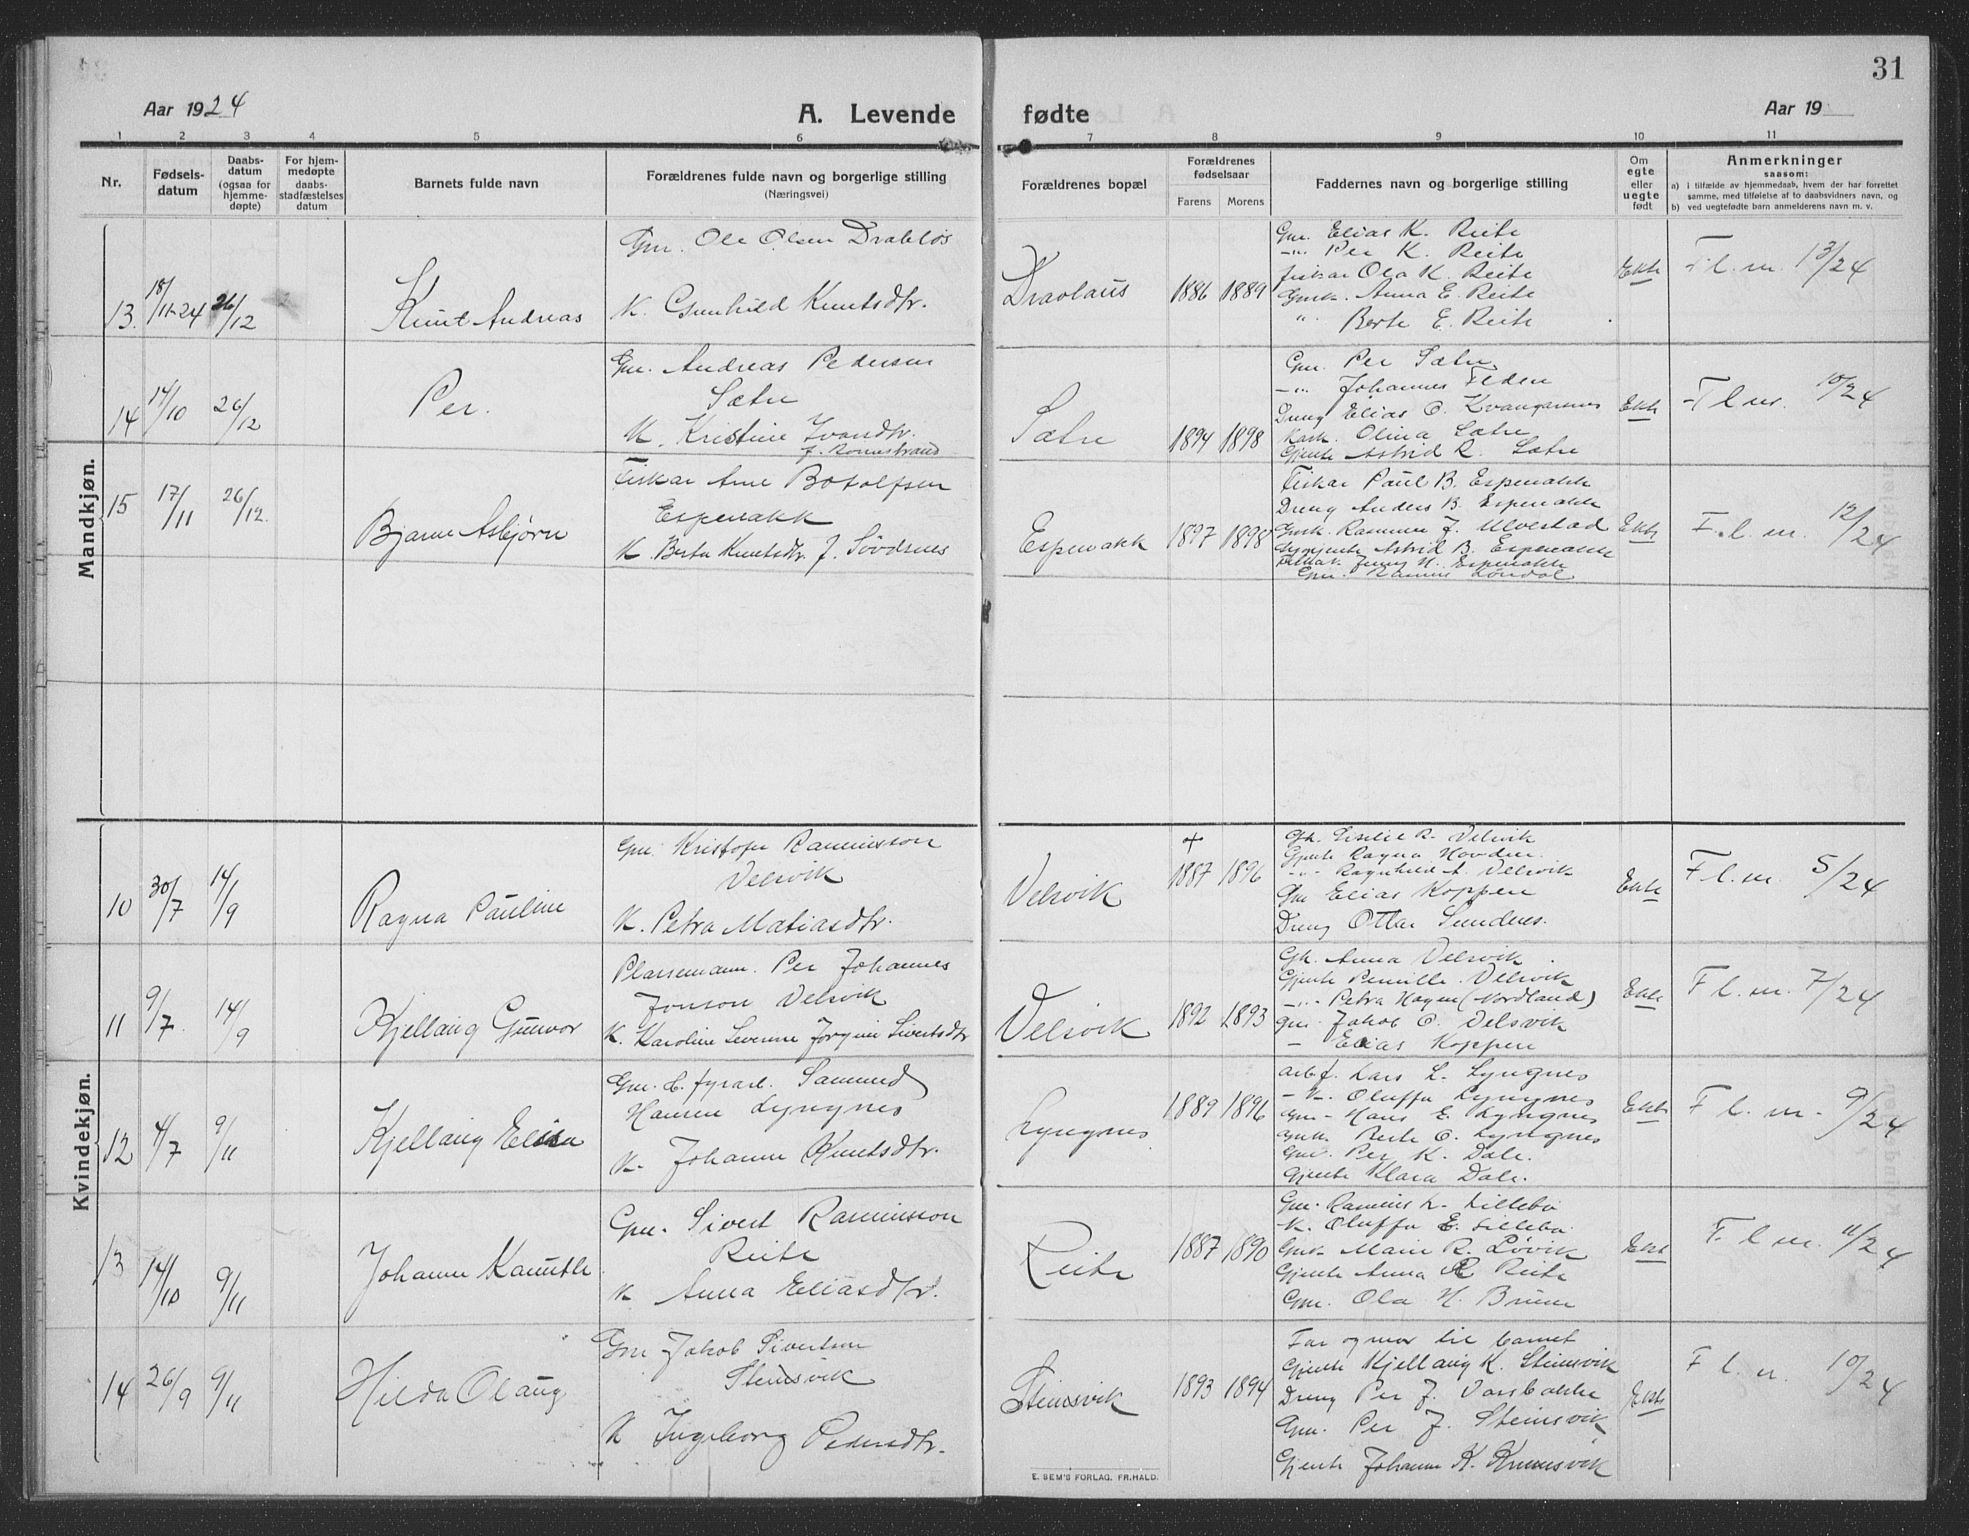 31
Aar 1924
A. Levende fødte
Aar 19
1 2 3 4 5 6 7 8 9 10 11
Nr.
Fødsels-
datum
Daabs-
datum
(ogsaa for
hjemme-
døpte)
For hjem-
medøpte
daabs-
stadfæstelses
datum
Barnets fulde navn
Forældrenes fulde navn og borgerlige stilling
(Næringsvei)
Forældrenes bopæl
Forældrenes
fødselsaar
Farens Morens
Faddernes navn og borgerlige stilling
Om
egte
eller
uegte
født
Anmerkninger
saasom:
a) i tilfælde av hjemmedaab, hvem der har forrettet
samme, med tilføielse af to daabsvidners navn, og
b) ved uegtefødte barn anmelderens navn m. v.
Mandkjøn.
13. 18/11-24 26/12
Knut Andreas
Gm. Ole Olsen Drabløs
K. Gunhild Knutsdtr.
Dravlaus
1886 1889
Gm. Elias K. Reite
-"- Per K. Reite
fiskar Ola K. Reite
Gmk. Anna E. Reite
" Berte E. Reite
Ekte
F. l. m. 13/24
14 14/10 26/12
Per.
Gm. Andreas Pedersen
Sætre
K. Kristine Ivarsdtr.
f. Romestrand
Sætre
1894 1898
Gm. Per Sætre
-"- Johannes Feden
Dreng Elias O. Kvangarsnes
Kark. Olina Sætre
Gjente Astrid R. Sætre
Ekte
F l m. 10/24
15 17/11 26/12.
Bjarne Asbjørn
Fiskar Arne Botolfsen
Espenakk
K. Berta Knutsdtr. f. Søvdsnes
Espenakk
1897 1898
Fiskar Paul B. Espenakk
Dreng Anders B. Espenakk
Gmk. Rasmus J. Ulvestad
Gjente Astrid B. Espenakk
Jenny H. Espenakk
Gm. Rasmus Løndal
Ekte
F. l. m. 12/24
Kvindekjøn.
10 30/7 14/9
Ragna Pauline
Gm. Kristofer Rasmusson
Velsvik
K. Petra Matiasdtr.
Velsvik
+
1887 1896
Gk. R. Velsvik
Gjente Ragna Hovden.
-"- Ragnhild A. Velsvik
Gm Elias Koppen
Dreng Ottar Sundnes.
Ekte
F l. m. 5/24
11 9/7. 14/9
Kjellaug Gunvor
Plassemann. Per Johannes
Jonson Velsvik
K. Karoline Severine Jørgine Sivertsdtr
Velsvik
1892 1893
Gk. Anna Velsvik.
Gjente Pernille Velsvik
-"- Petra Hagen (Nordland)
Gm. Jakob O. Velsvik
- Elias Koppen
Ekte
F l. m. 7/24
12 4/7 9/11
Kjellaug Elisa
Gm. Samund
Hansen Lyngnes
K. Johanne Knutsdtr.
Lyngnes
1889 1896
Arbf. Lars L. Lyngnes
-K- Oluffa Lyngnes
Gm - Hans E. Lyngnes
Gmk. Berte O. Lyngnes
Gm. Per K. Dale.
Gjente Klara Dale.
Ekte
F l. m. 9/24
13 14/10 9/11
Johanne
Gm. Sivert Rasmusson
Reite
K Anna Eliasdtr.
Reite
1887 1890
Gm. Rasmus L. Lillebø
-K. Oluffa E. Lillebø.
Gmk Marie R. Løvik
Gjente Anna R Reite
Gm. Ola H. Brune
Ekte
F. l m. 11/24
14 26/9 9/11
Hilda Olaug
Gm Jakob Sivertsen
Steinsvik
K Ingeborg Pedersdtr.
Steinsvik
1893 1894
Far og mor til barnet
Gjente Kjellaug K. Steinsvik
Dreng Per J. Varsbakke
Gm. Per J. Steinsvik
Gjente Johanne K.
Ekte
F l. m. 10/24
E. SEM'S FORLAG. FR.HALD.